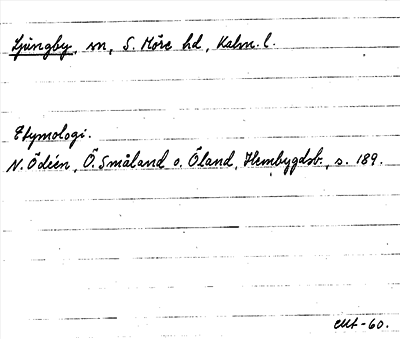 Ljungby, sn, S. Möre hd, Kalm. l.
Etymologi.
N. Ödéen, Ö. Småland o. Öland, Hembygdsb., s. 189.
-60.